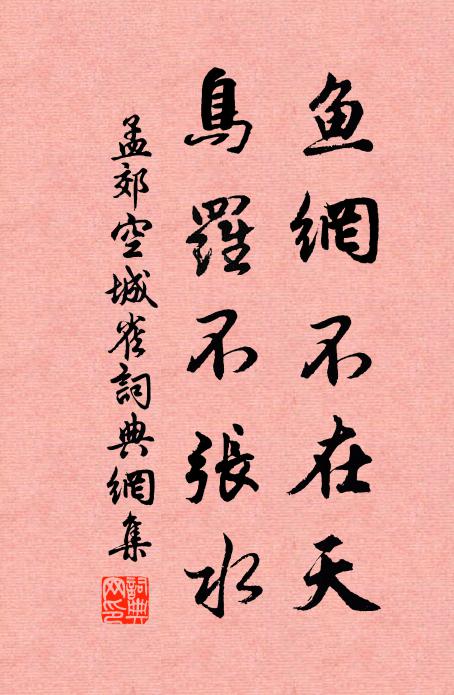 魚網不在天
鳥羅不張水
孟郊空城雀詞典網集
詞典
网印